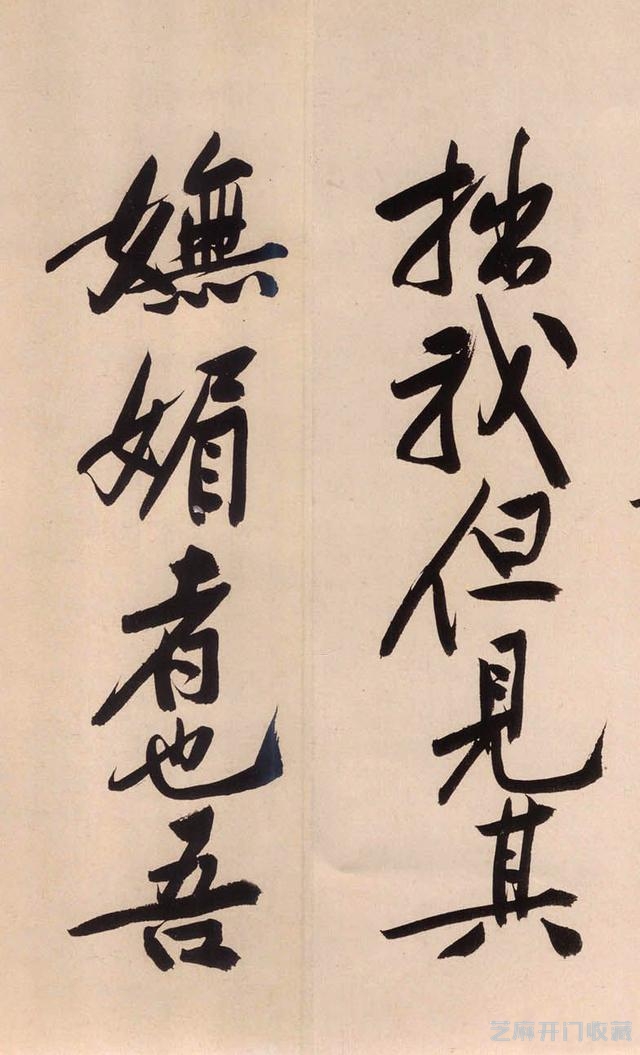 拙我但見其
嫵媚者也吾
芝麻开门收藏